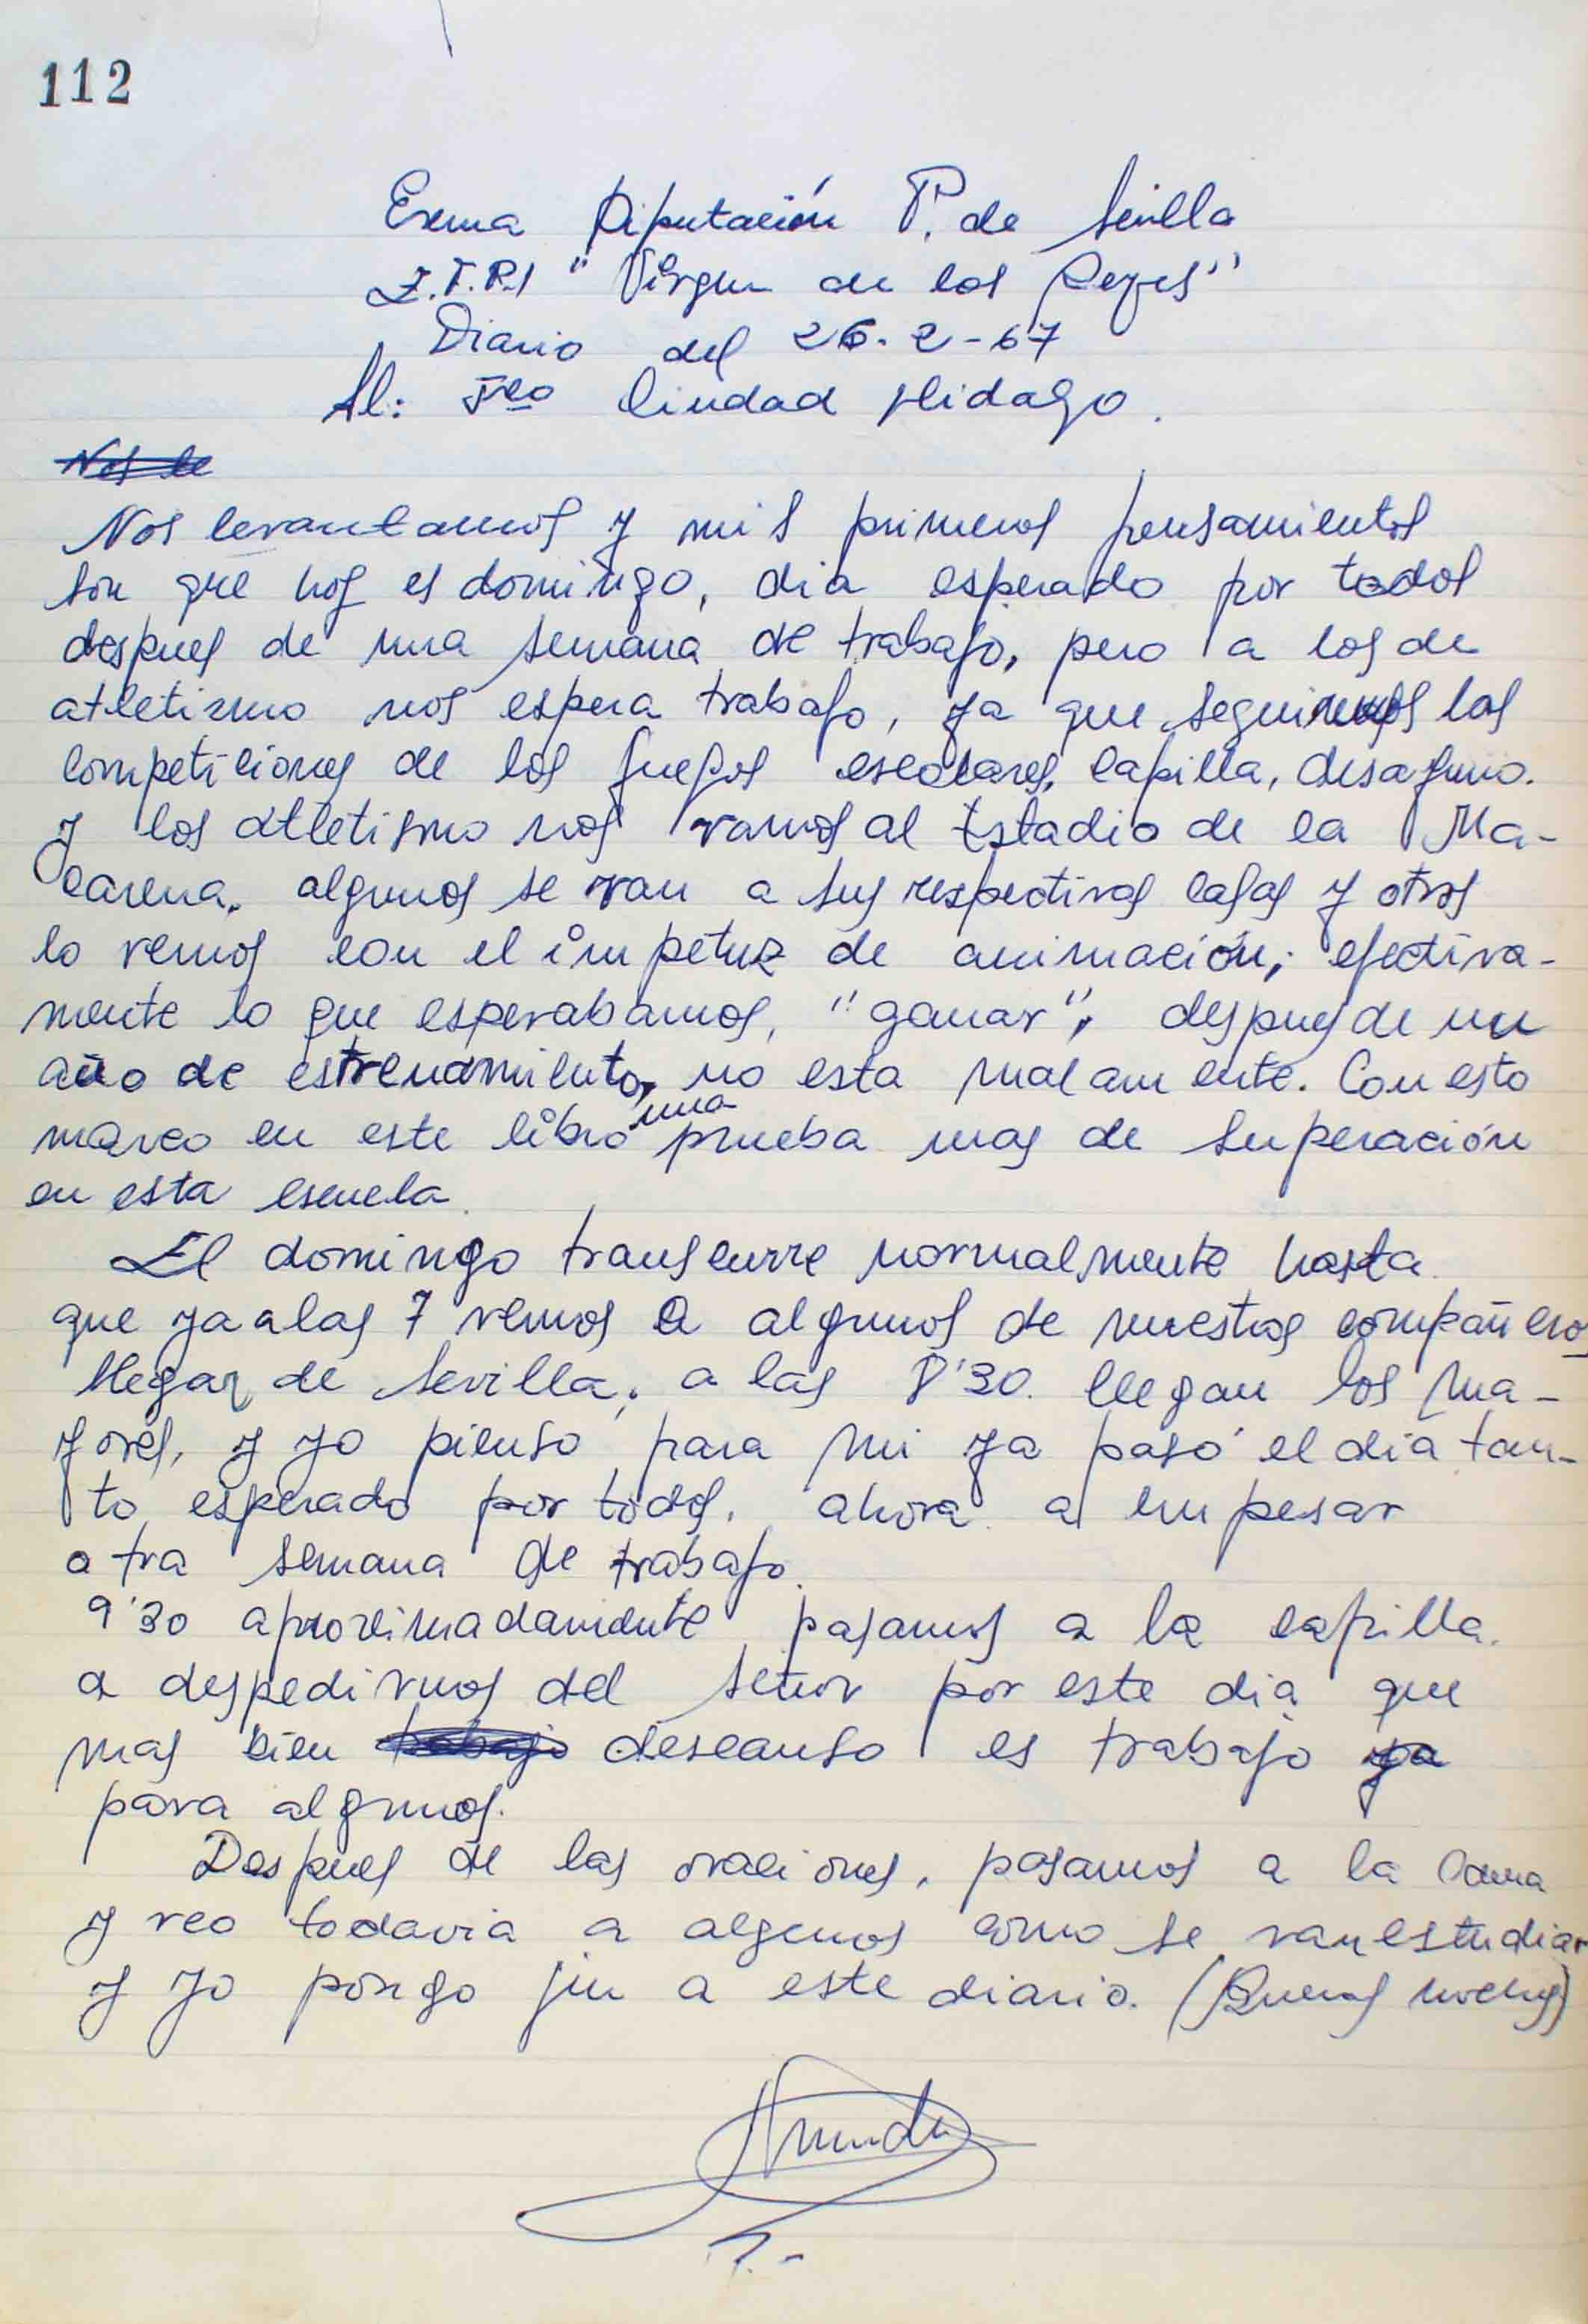 112
Exma Diputación P. de Sevilla
E.T.P.I "Virgen de los Reyes"
Diario del 26-2-67
Al: Fco Ciudad Hidalgo.
Nos le
Nos levantamos y mis primeros pensamientos
son que hoy es domingo, dia esperado por todos
despues de una semana de trabajo, pero a los de
atletismo nos espera trabajo, ya que seguimos las
competiciones de los juegos escolares, capilla, desayuno.
y los atletismo nos vamos al Estadio de la Ma-
carena. algunos se van a sus respectivas casas y otros
lo vemos con el impetuz de animación; efectiva-
mente lo que esperabamos, "ganar", despues de un
año de estrenamiento, no esta malamente. Con esto
marco en este libro una prueba mas de superación
en esta escuela.
El domingo transcurre normalmente hasta
que ya a las 7 vemos a algunos de nuestros compañeros
llegar de Sevilla, a las 8'30. llegan los ma-
yores, y yo pienso para mi ya pasó el dia tan-
to esperado por todos, ahora a empesar
otra semana de trabajo.
9'30 aproximadamente pasamos a la capilla.
a despedirnos del señor por este dia que
mas bien trabajo descanso es trabajo ya
para algunos.
Despues de las oraciones, pasamos a la cama
y veo todavia a algunos como se van estudiar
y yo pongo fin a este diario. (Buenas noches)